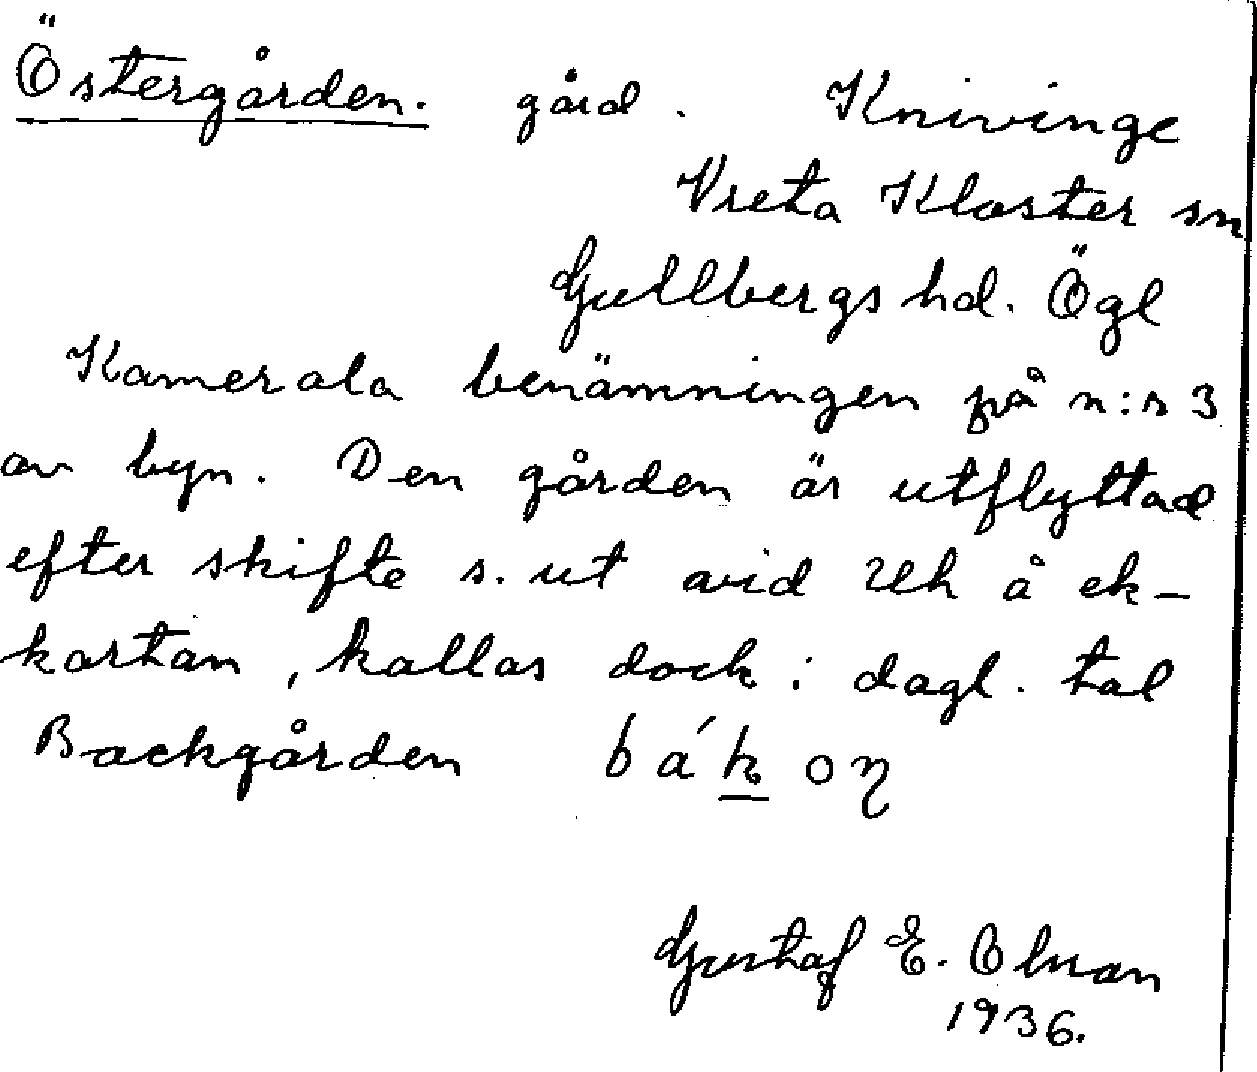 Östergården. gård. Knivinge
Vreta Kloster sn
Gullbergs hd. Ögl
Kamerala benämningen på n:r 3
av byn. Den gården är utflyttad
efter skifte s. ut avid Uh å ek-
kartan, kallas dock i dagl. tal
Backgården bákoŋ
Gustaf E. Olsson
1936.